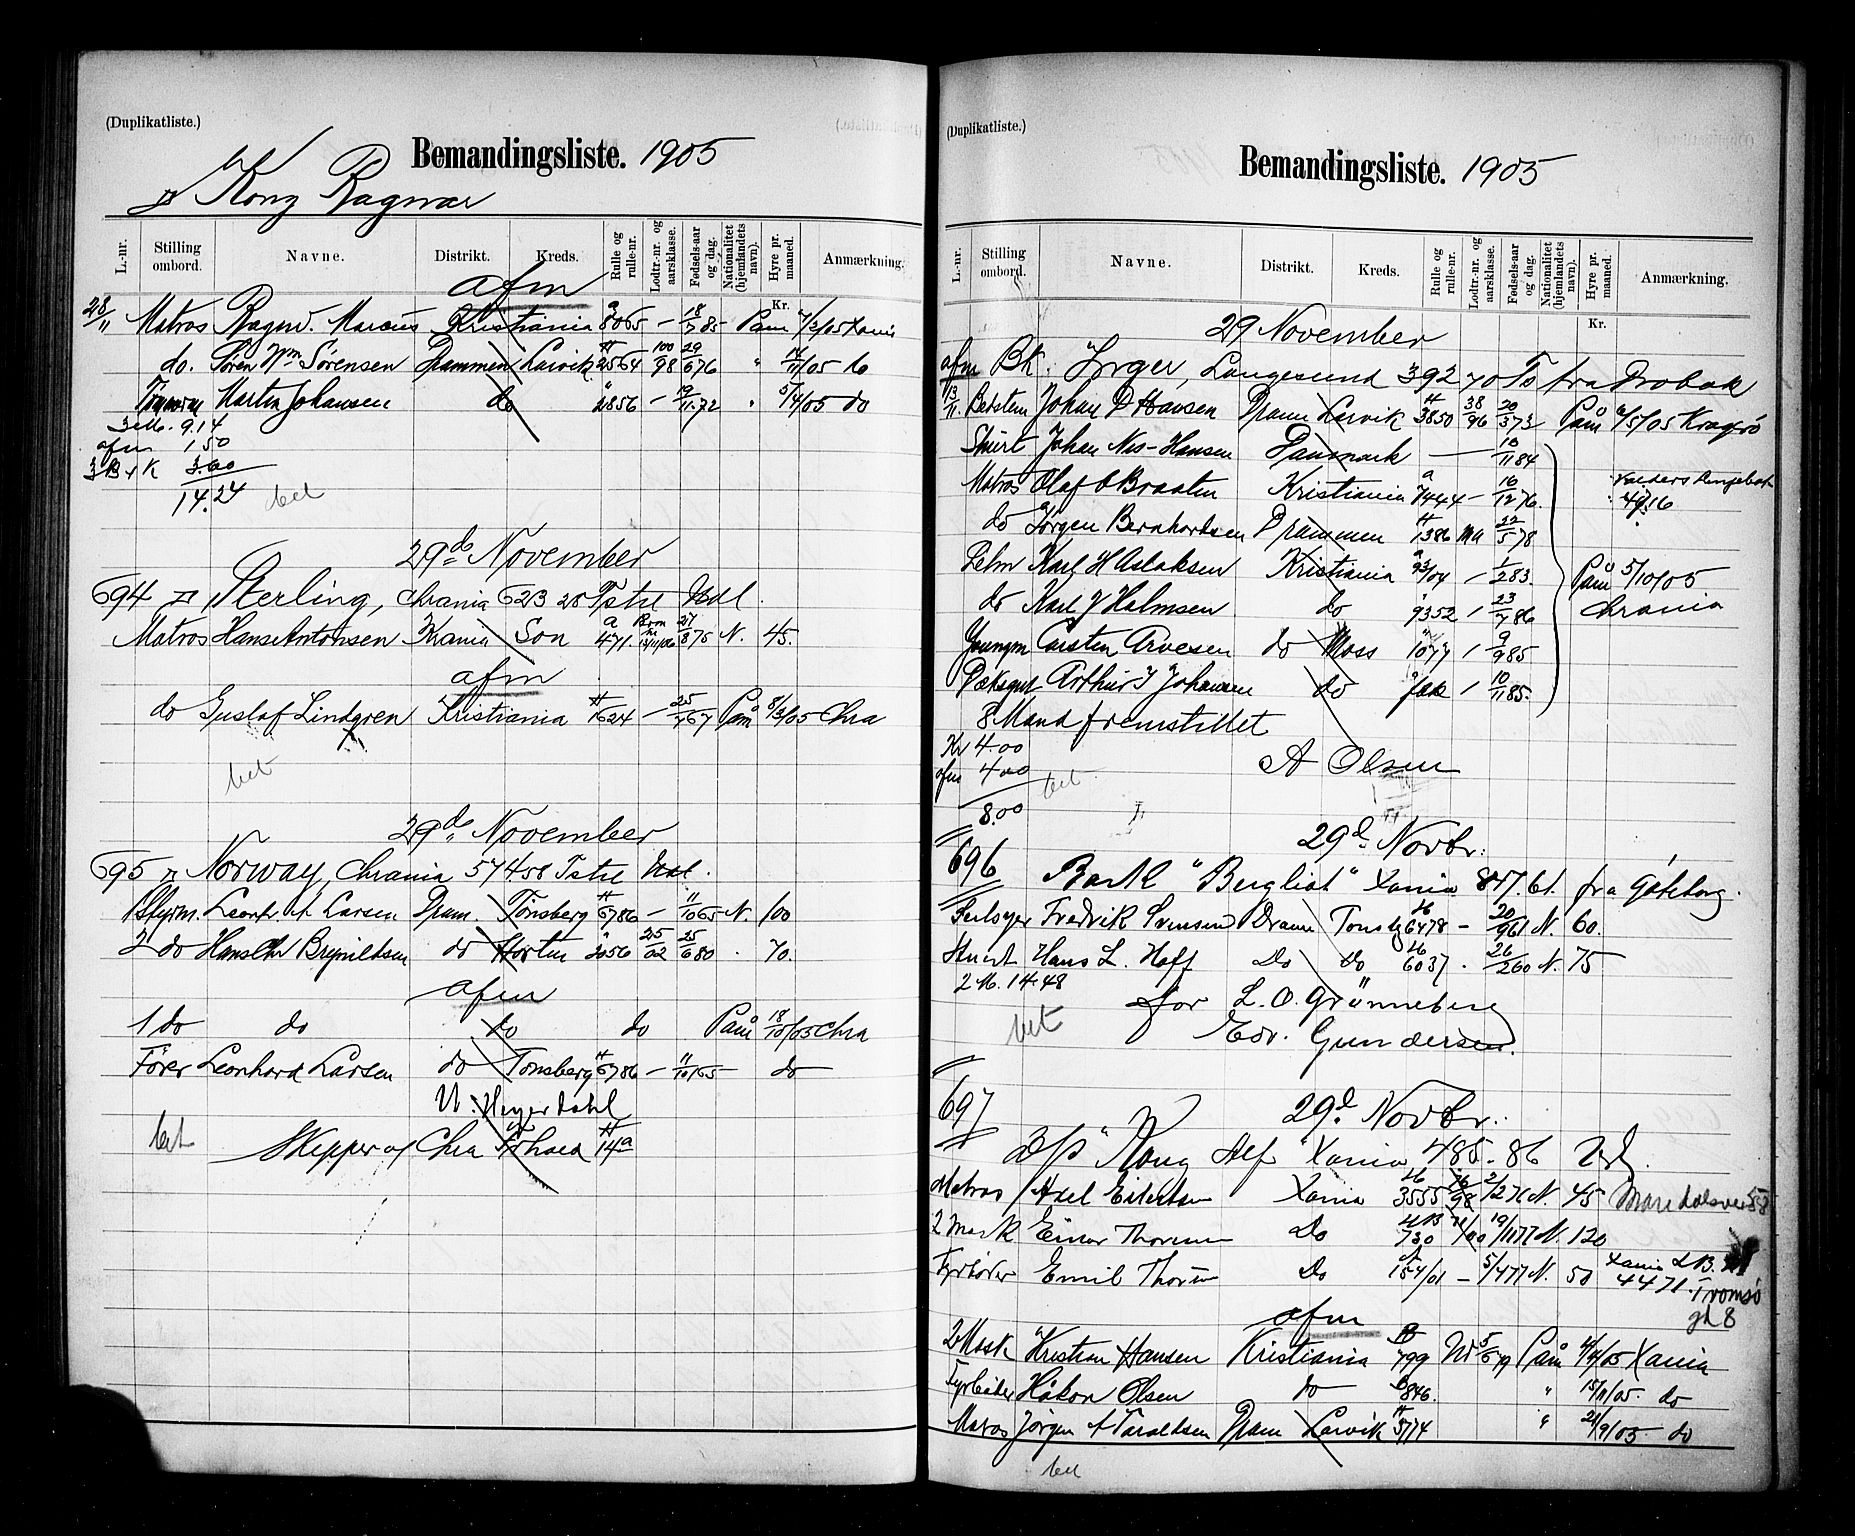 (Duplikatliste.)
Bemandingsliste. 1905
Kong Ragnar
L.-nr. Stilling ombord. Navne. Distrikt. Kreds. Rulle og rulle-nr. Lodtr.-nr. og aarsklasse. Fødsels-aar og dag. Nationalitet (hjemlandets navn). Hyre pr. maaned. Anmærkning.
Kr.
afm
28/11 Matros Ragnv. Marcus Kristiania a 8065 — 18/7 85 Paam 7/2/05 Xania
do. Søren Wm Sørensen Drammen Larvik H 2564 100/98 29/6 76 " 14/11/05 do
Martin Johansen do " 2856 — 19/11.72 " 5/4/05 do
3 M. 9.14
afm 1.50
3 B + K 3.60
14.24 bet
29de November
694 Sterling, Chrania 623 28 Tstel Udl.
Matros Hans Antonsen Krania Son a 471. 27/8 75 N. 45.
afm
do Gustaf Lindgren Kristiania H 1624 — 25/7 67 Paam 8/3/05 Chra
bet
29de November
695 Norway, Chrania 574 58 Tstel Udl.
1 Styrm. Leonh. A Larsen Dram. Tønsberg H 6786 — 11/10 65 N. 100
2 do Hans Chr Brynildsen do Horten " 2056 25/02 25/6 80 . 70.
afm
1 do do do do Paam 18/10/05 Chra
Fører Leonhard Larsen do Tønsberg H 6786 — 11/10 65 do
U. Heyerdahl
bet Skipper af Chra H 14a
(Duplikatliste.)
Bemandingsliste. 1905
L.-nr. Stilling ombord. Navne. Distrikt. Kreds. Rulle og rulle-nr. Lodtr.-nr. og aarsklasse. Fødsels-aar og dag. Nationalitet (hjemlandets navn). Hyre pr. maaned. Anmærkning.
Kr.
29 November
afm Bk. Langesund 392 70 To fra Drøbak
13/11. Bedstm Johan D Hansen Dram Larvik H 3850 38/96 20/3 73 Paam 6/5/05 Kragerø
Stuert Johan Nis-Hansen Danmark — 10/11 84
Matros Olaf O Braaten Kristiania a 7444 — 16/12 76.
do Jørgen Bernhardsen Drammen H 1386 22/5 78
Letm Karl H Aslaksen Kristiania a 93/04 — 1/2 83. Paam 5/10/05
do Karl J Halmsen do " 9352 1 23/7 86 Chrania
Youngm Carsten Arvesen do Moss " 1077 1 9/9 85
Dæksgut Arthur I Johansen do 1 10/11 85.
8 Mand fremstillet
Kr 4.00
afm 4.00
8.00 bet
A Olsen
29d. Novbr.
696 Bark "Bergliot" Xania 847.61. fra Gøteborg.
Seilsyer Fredrik Svensen Dram Tonsbg H 6478 — 20/9 61 N. 60.
Stuert Hans L. Hoff Do Do H 6037 . 26/2 60 N. 75
2 M. 14.48
for L. O. Grønneberg
bet Edv. Gundersen.
697 29d. Novbr.
D/S "Kong Alf" Xania 485-86 Udl.
Matros Axel Eilertsen Xania H 3555 76/98 2/2 76 N. 45 Maridalsvei 58
2 Mask Einar Thoresen Do 730 19/11 77 N. 120
Fyrbøder Emil Do A 154/01 — 5/4 77 N. 50 Xania
4471. Tromsø
gd 8
afm
2 Mask Kristian Hansen Kristiania B 799 5/6 79 Paam 4/4/05 Xania
Fyrbøder Håkon Olsen do 6846. " 15/11/05. do
Matros Jørgen A Taraldsen Dram Larvik H 3774 " 21/9/05 do
bet